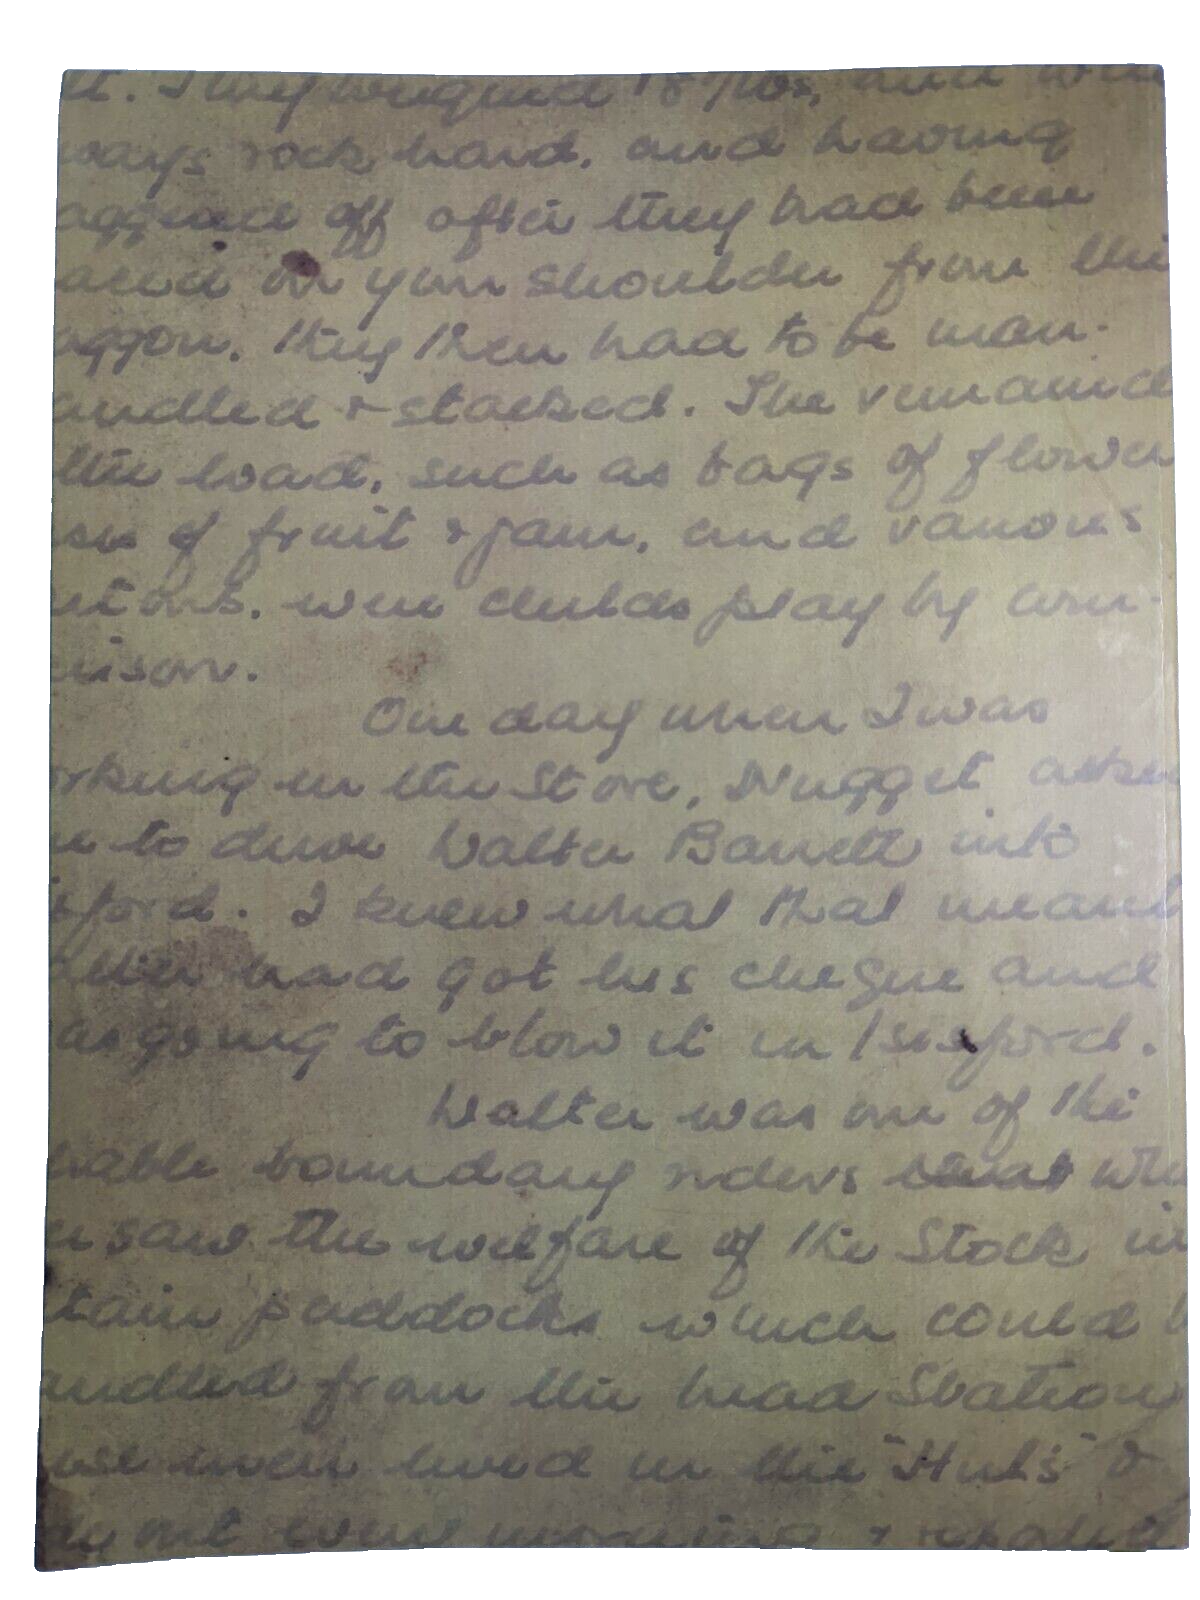 They weighed lbs, and
ways rock hard, and having
off after they had been
on your shoulder from the
aggon, they then had to be man-
andled & stacked. The remaind
the load, such as bags of flower
of fruit & jam, and various
were childs play by com-
rison.
One day when I was
orking in the Store, Nugget aske
to drive Walter Barrett into
isford. I knew what that meant
lter had got his cheque and
as going to blow it in Isisford.
Walter was one of the
liable boundary riders that who
saw the welfare of the Stock in
tain paddocks which could b
andled from the head Station
ese men lived in the "Huts" &
out every morning &